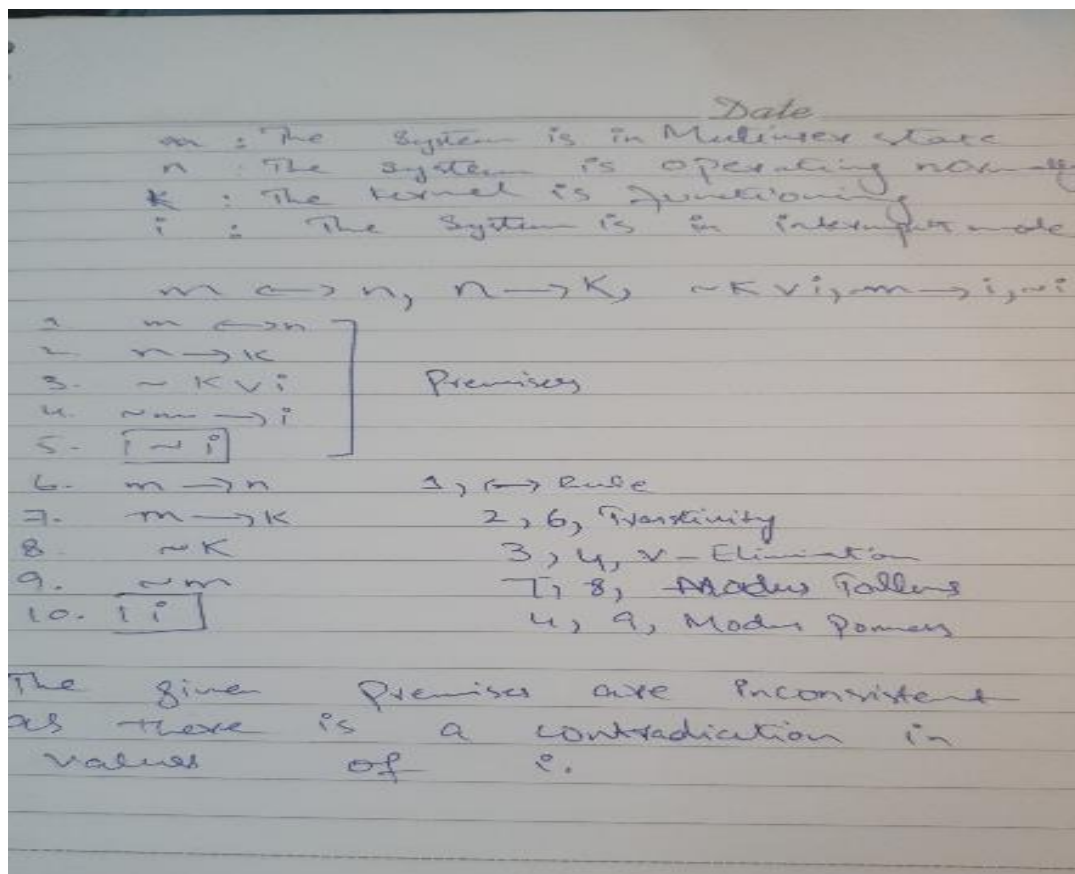 Date
m : The System is in Multiuser state
n : The system is operating normally
k : The kernel is functioning
i : The System is in interrupt mode
m ↔ n, n → K, ~K ∨ i, ~m → i, ~i
1. m ↔ n
2. n → K
3. ~ K ∨ i Premises
4. ~m → i
5. ~ i
6. m → n 1, ↔ Rule
7. m → K 2, 6, Transitivity
8. ~K 3, 4, ∨-Elimination
9. ~m 7, 8, Modus Tollens
10. i 4, 9, Modus Ponness
The given Premises are inconsistent
as there is a contradication in
values of i.